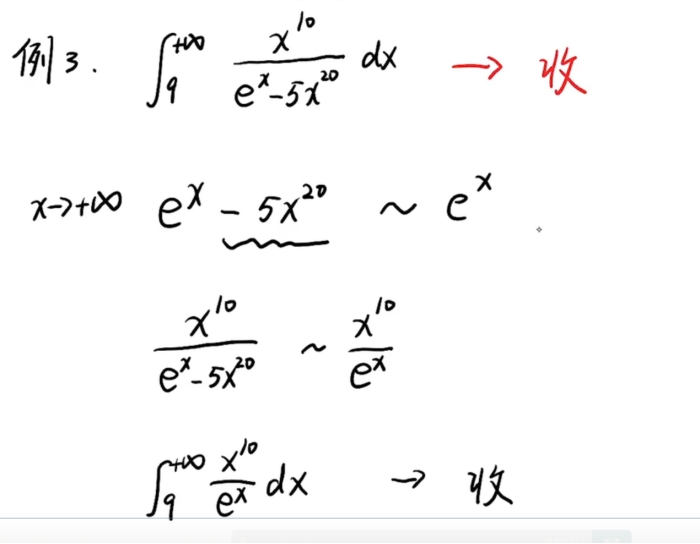 例3. ∫₉⁺∞ x¹⁰/(eˣ-5x²⁰) dx → 收
x→+∞ eˣ - 5x²⁰ ~ eˣ
x¹⁰/(eˣ-5x²⁰) ~ x¹⁰/eˣ
∫₉⁺∞ x¹⁰/eˣ dx → 收